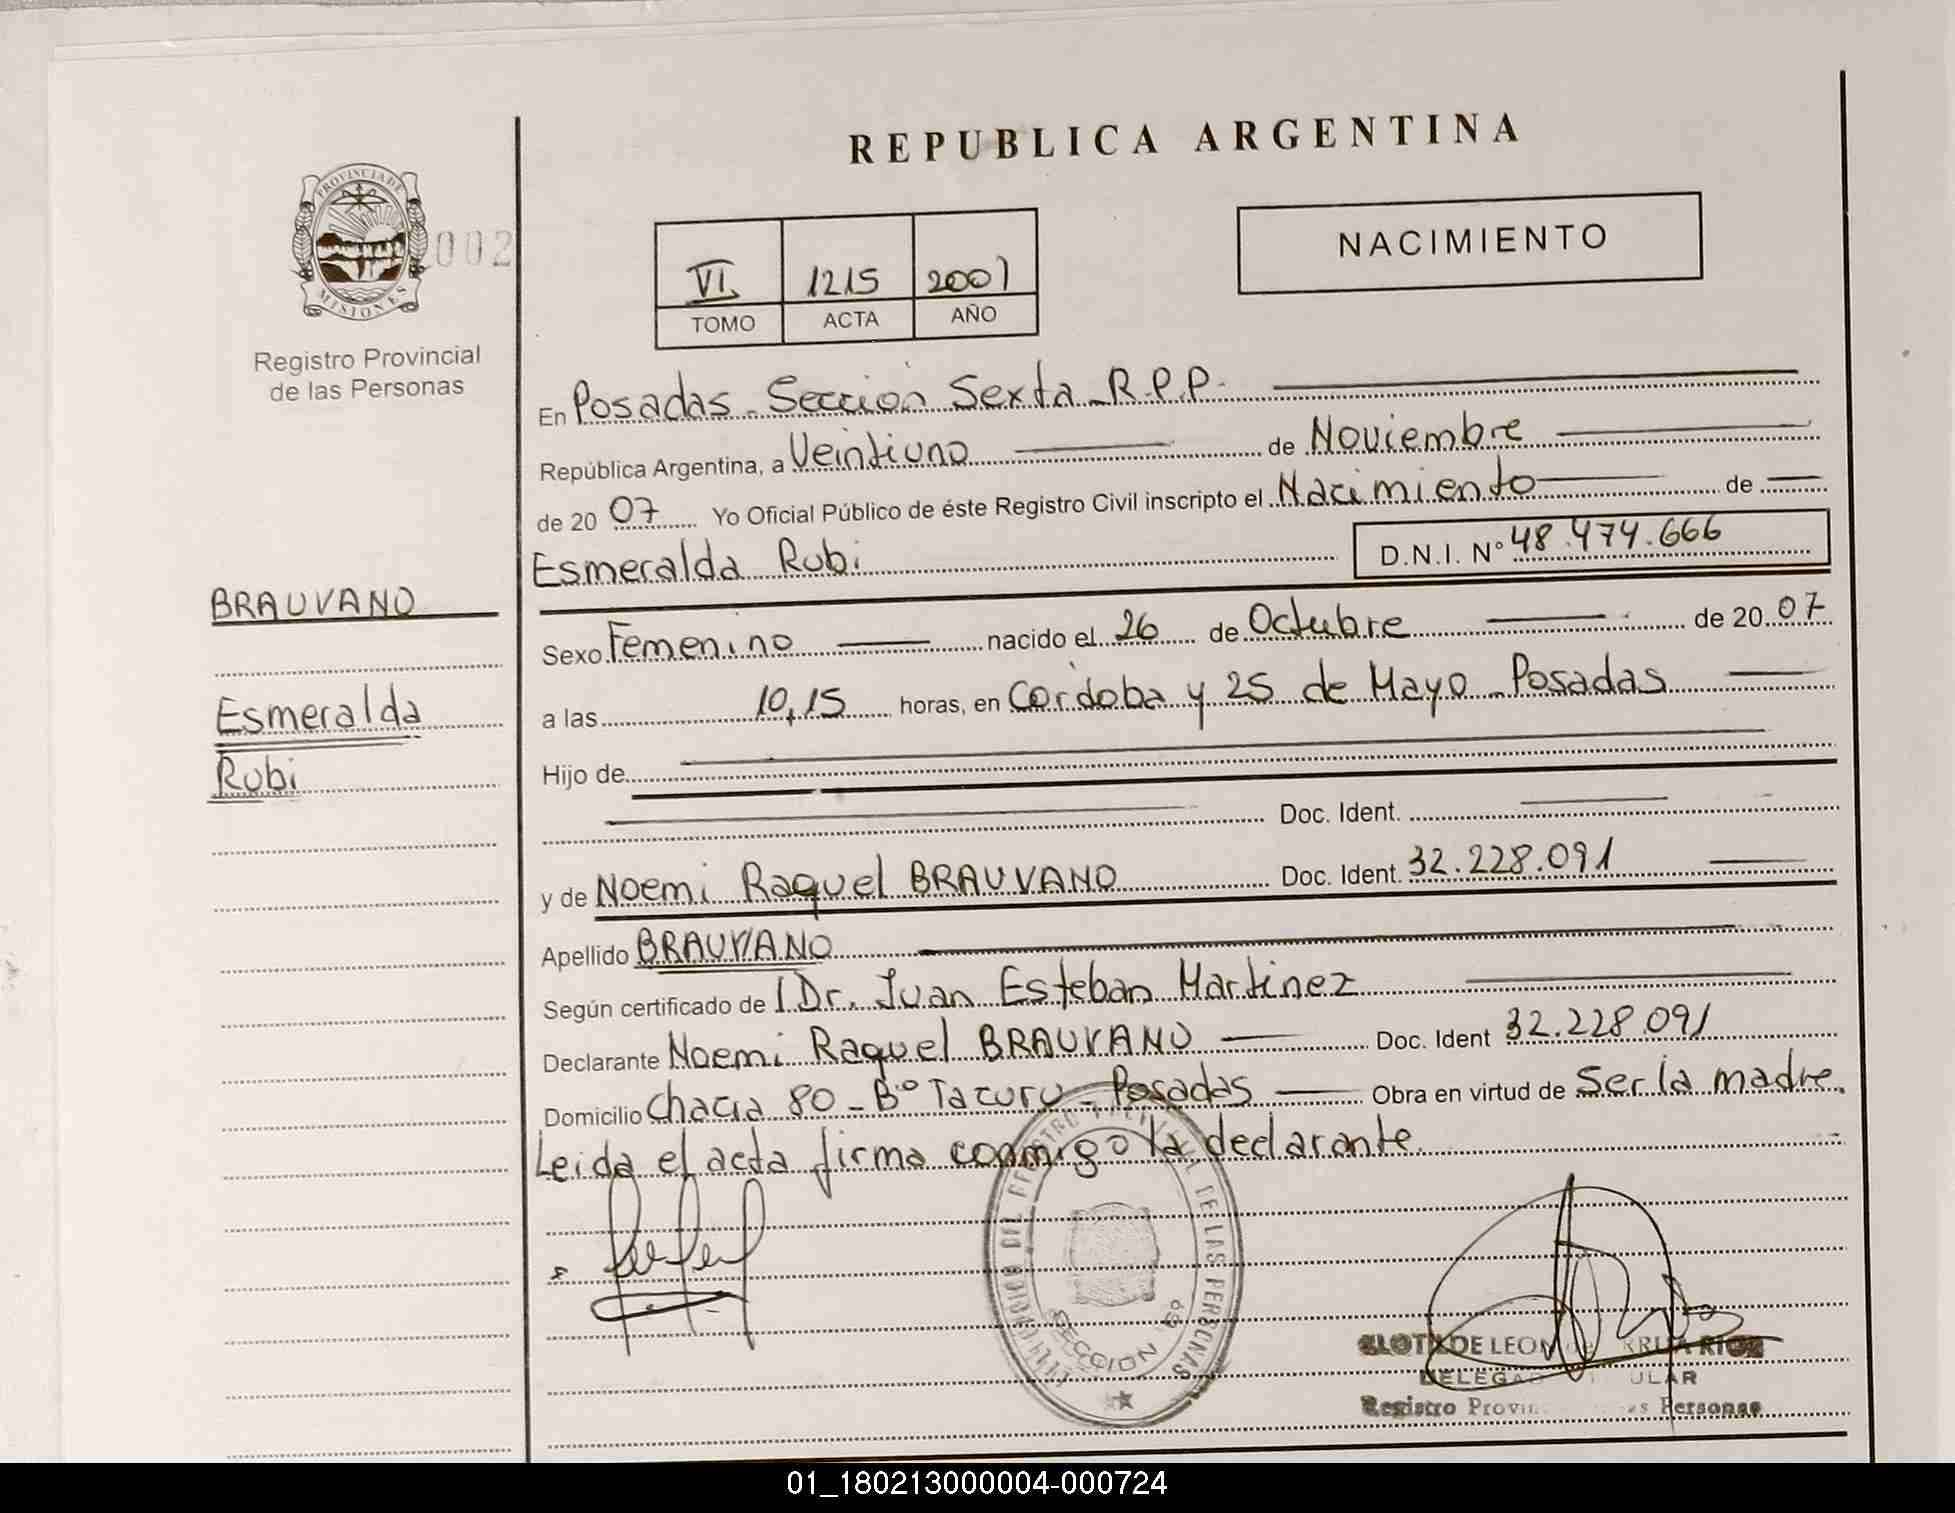 REPUBLICA ARGENTINA
PROVINCIA DE
MISIONES
002
Registro Provincial
de las Personas
VI 1215 2007
TOMO ACTA AÑO
NACIMIENTO
En Posadas - Sección Sexta - R.P.P.
República Argentina, a Veintiuno de Noviembre
de 20 07 Yo Oficial Público de éste Registro Civil inscripto el Nacimiento de
Esmeralda Rubi D.N.I. N° 48.474.666
BRAUVANO
Esmeralda
Rubi
Sexo Femenino nacido el 26 de Octubre de 20 07
a las 10,15 horas, en Cordoba y 25 de Mayo - Posadas
Hijo de
Doc. Ident.
y de Noemi Raquel BRAUVANO Doc. Ident. 32.228.091
Apellido BRAUVANO
Según certificado de Dr. Juan Esteban Martinez
Declarante Noemi Raquel BRAUVANO Doc. Ident 32.228.091
Domicilio Chacra 80 - B° Tacuru - Posadas Obra en virtud de Ser la madre.
Leida el acta firma conmigo la declarante.
DE LAS PERSONAS
SECCION
DE LEON
Registro Personas
01_180213000004-000724